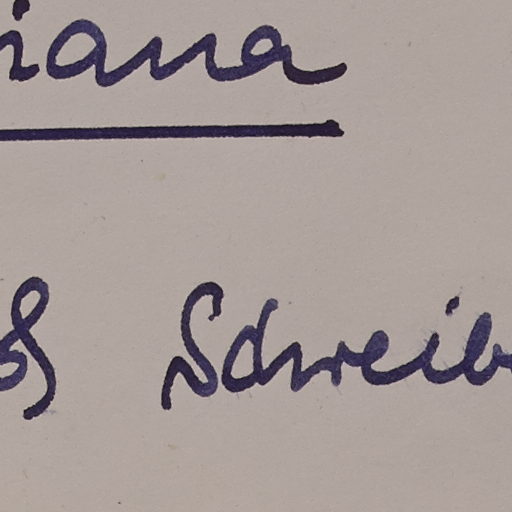 iana
Schreib